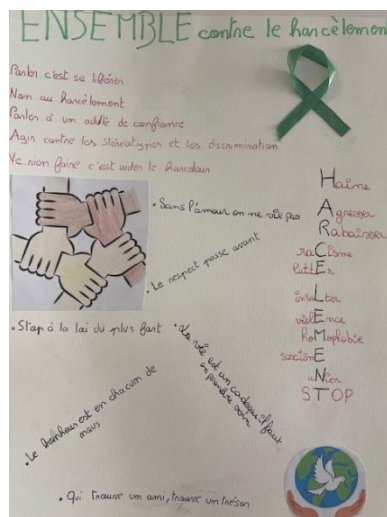 ENSEMBLE contre le harcèlement
Parler c'est se libérer
Non au harcèlement
Parler à un adulte de confiance
Agir contre les stéréotypes et les discrimination
Ne rien faire c'est aider le harceleur
Haine
Agresser
Rabaisser
raCisme
luttEr
insuLter
violEnce
hoMophobie
sexismE
uNion
STOP
• Sans l'amour on ne vie pas
• Le respect passe avant
• Stop à la loi du plus fort
• La vie est un cadeau qu'il faut
en prendre soin
• Le bonheur est en chacun de
nous
• Qui trouve un ami, trouve un trésor